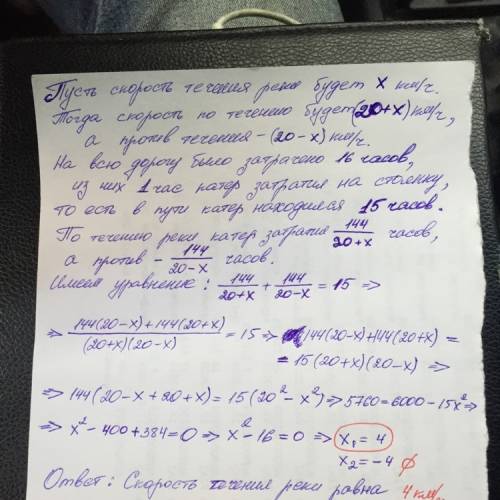 Пусть скорость течения реки будет x км/ч.
Тогда скорость по течению будет (20+x) км/ч,
а против течения - (20-x) км/ч.
На всю дорогу было затрачено 16 часов,
из них 1 час катер затратил на стоянку,
то есть в пути катер находился 15 часов.
По течению реки катер затратил 144/(20+x) часов,
а против - 144/(20-x) часов.
Имеем уравнение: 144/(20+x) + 144/(20-x) = 15 =>
=> (144(20-x)+144(20+x))/((20+x)(20-x)) = 15 => 144(20-x)+144(20+x) =
= 15(20+x)(20-x) =>
=> 144(20-x+20+x) = 15(20²-x²) => 5760 = 6000-15x² =>
=> x²-400+384=0 => x²-16=0 => x₁ = 4
x₂ = -4 ∅
Ответ: Скорость течения реки равна 4 км/ч.